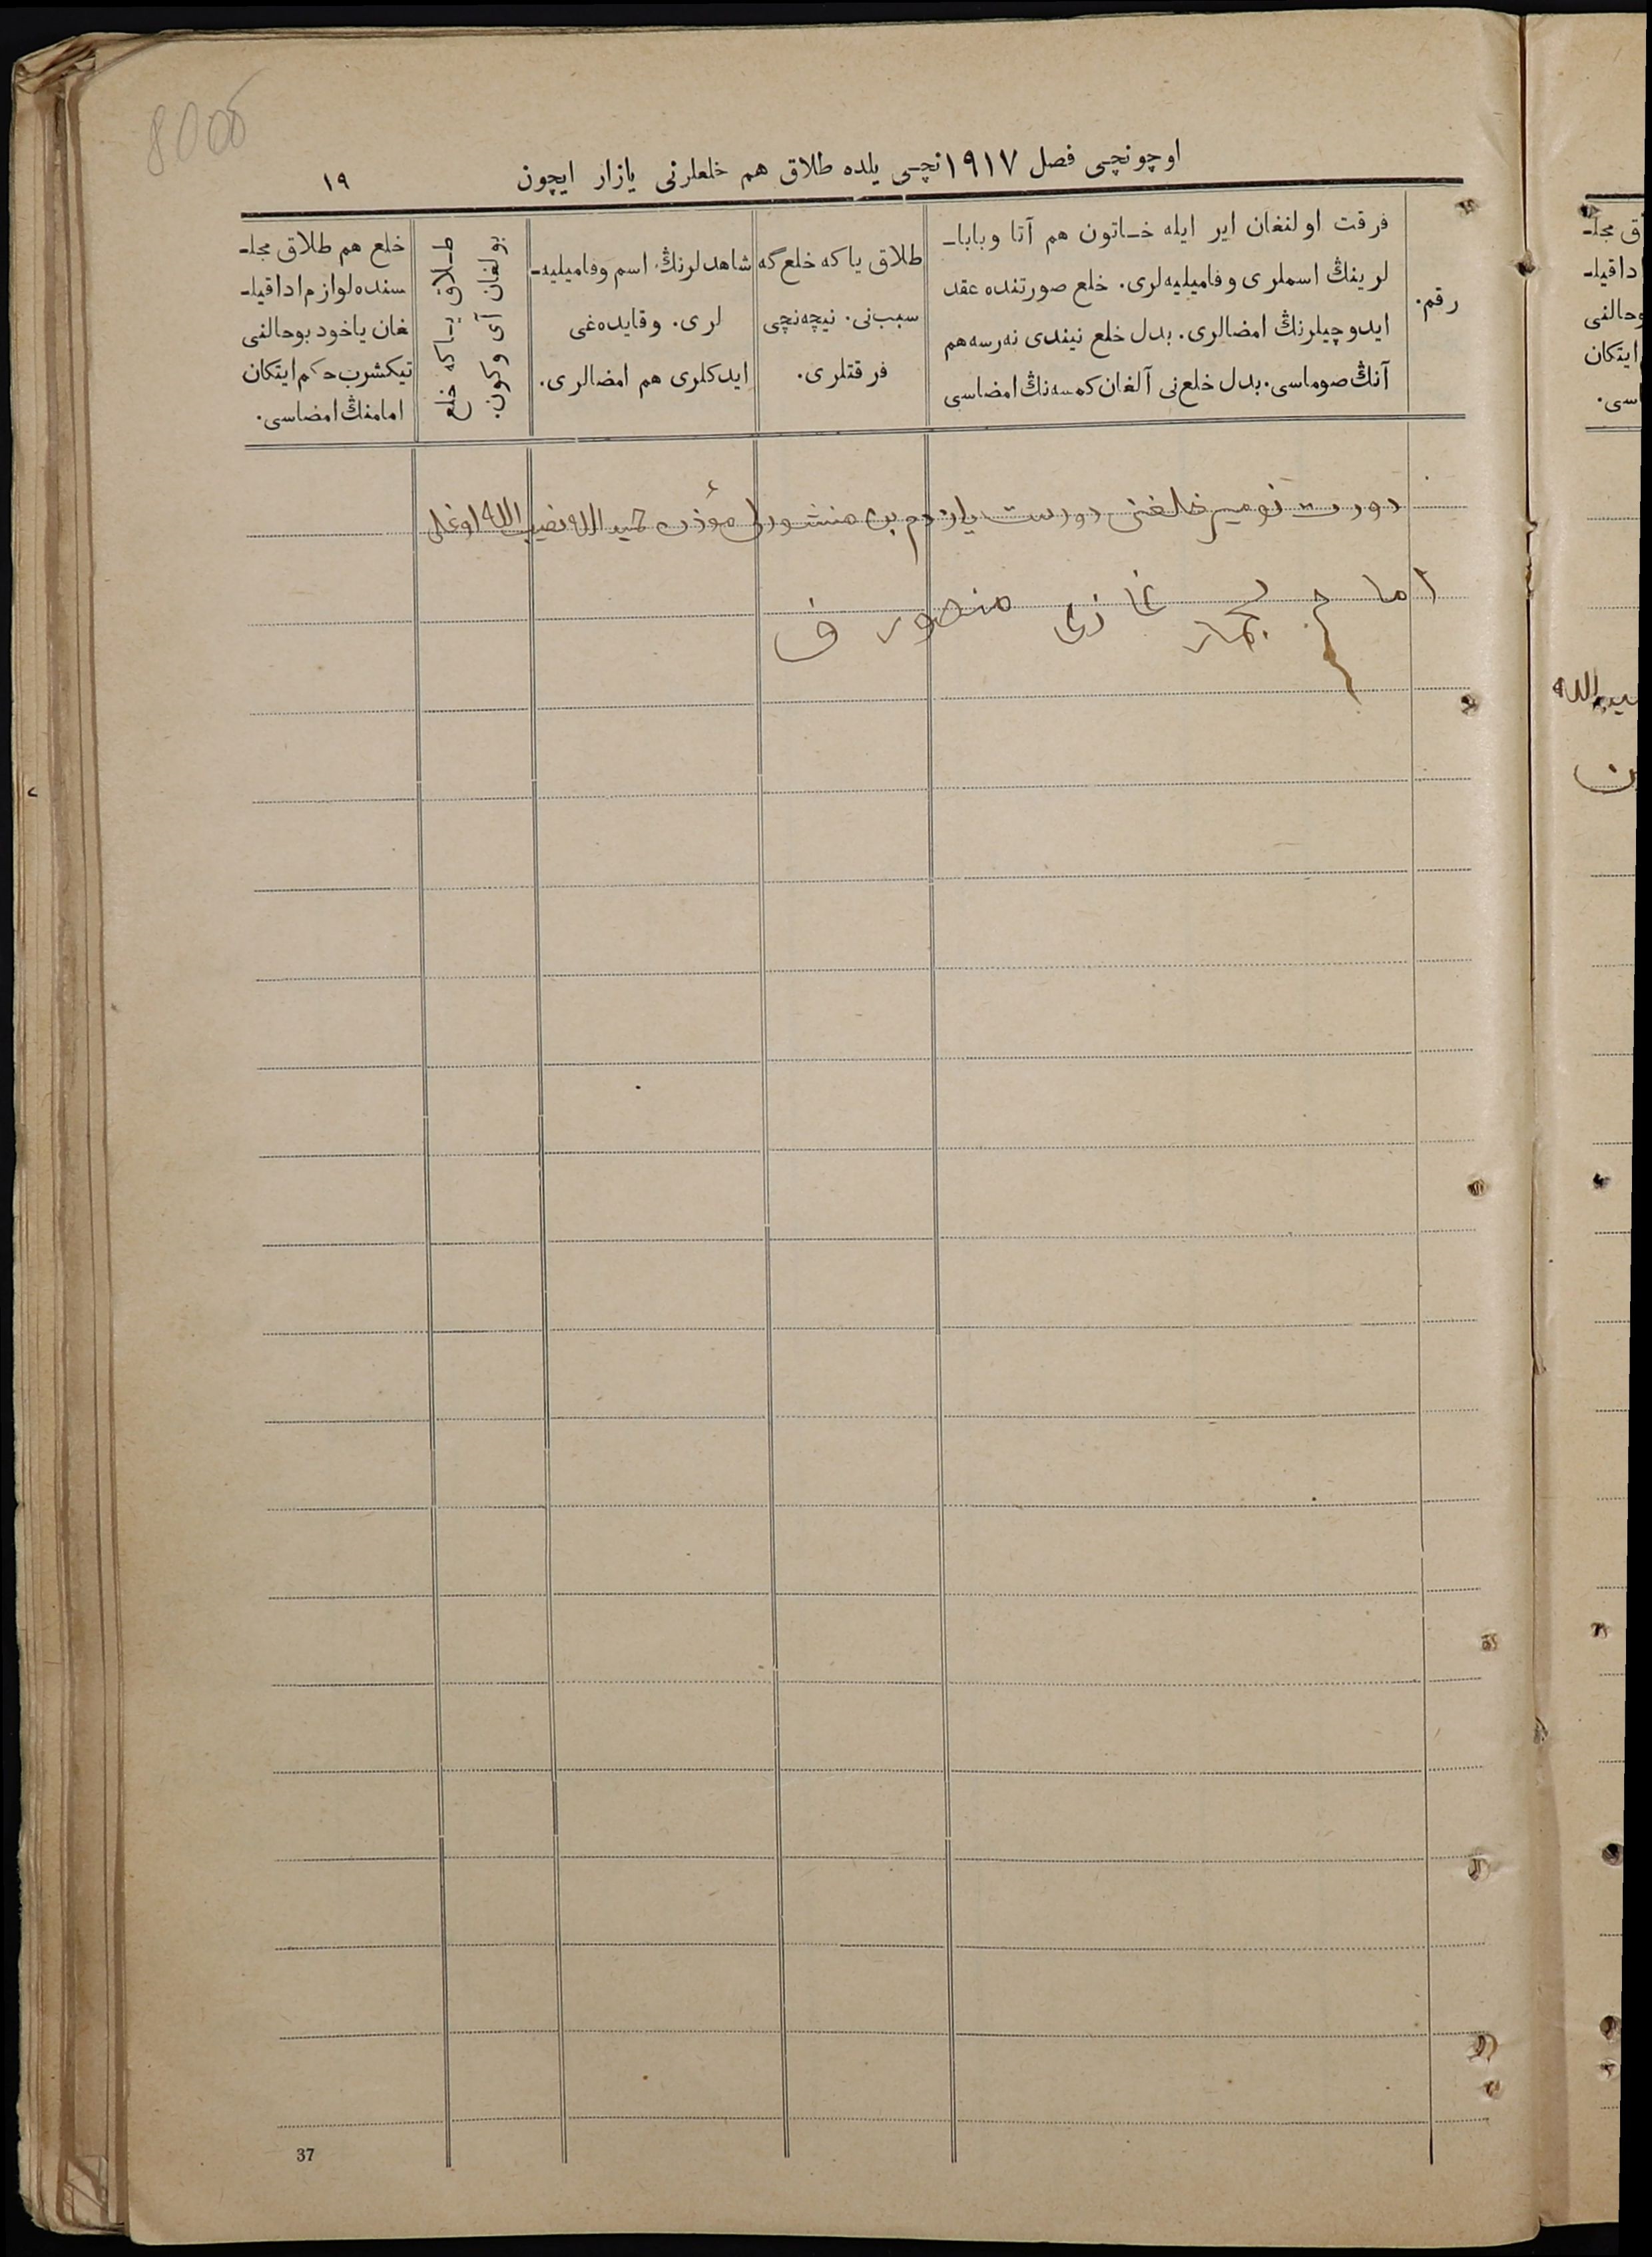 800б
اوچونچی فصل ١٩١٧نچی یلده طلاق هم خلعلرنی یازار ایچون
١٩
رقم.
فرقت اولنغان ایر ایله خاتون هم آتا وبابا-
لرینڭ اسملری وفامیلیه‌لری. خلع صورتنده عقد
ایدوچیلرنڭ امضالری. بدل خلع نیندی نه‌رسه هم
آنڭ صوماسی. بدل خلع‌نی آلغان کمسه‌نڭ امضاسی
طلاق یاکه خلع گه
سبب‌نی. نیچه‌نچی
فرقتلری.
شاهدلرنڭ اسم وفامیلیه-
لری. وقایده‌غی
ایدکلری هم امضالری.
طلاق یاکه خلع
بولغان آی وکون.
خلع هم طلاق مجلـ
سنده لوازم ادا قیلـ
غان یاخود بوحالنی
تیکشرب حکم ایتکان
امامنڭ امضاسی.
دورت نومیر خلغنی دورست یازدم بن منشورلی مؤذن حمید الله نصیب الله اوغلی
امام غازی منصورف
37